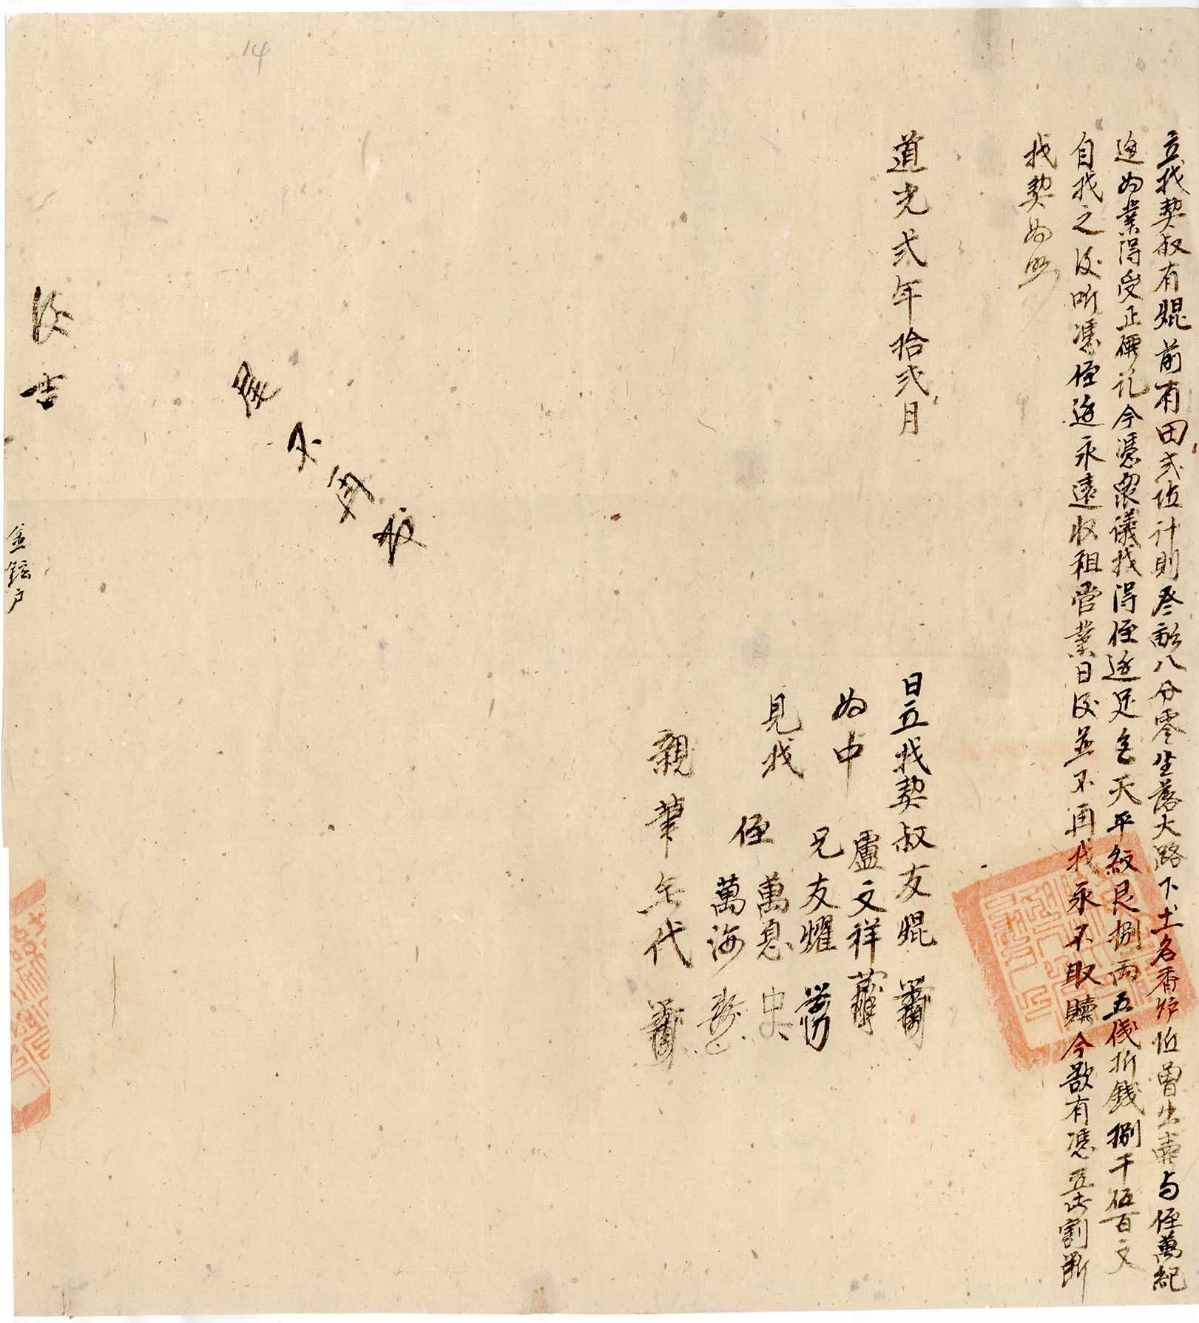 14
立找契叔有焜前有田弍坵計則叁畝八分零坐落大路下土名香炉坵曾出賣与侄萬紀
邊為業得受正價訖今憑衆議找得侄邊足色天平紋艮捌両五伐折錢捌千伍百文
自找之後听憑侄邊永遠收租管業日後並不再找永不取贖今欲有憑立此割断
找契為照
道光弍年拾弍月
日立找契叔友焜
為中 盧文祥
兄友耀
見找 侄 萬息
萬海
親筆無代
再不
後吉
金鋐户